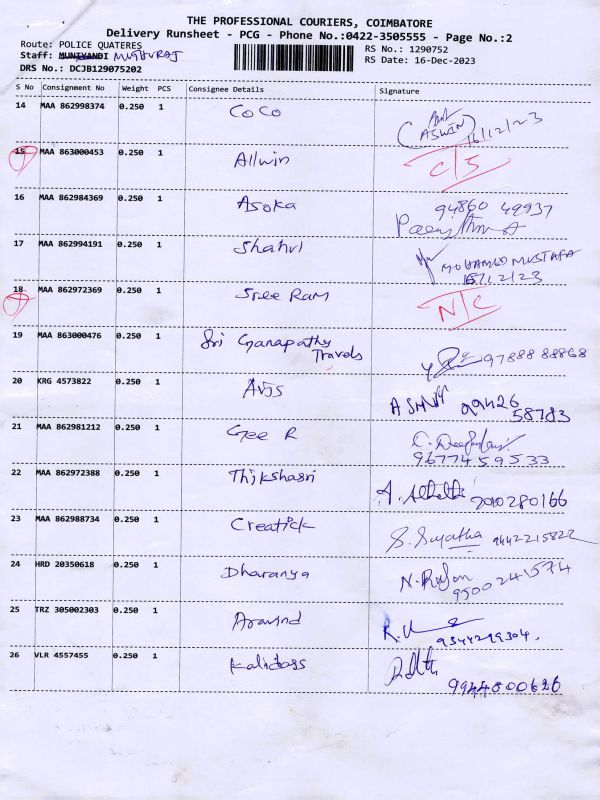 THE PROFESSIONAL COURIERS, COIMBATORE
Delivery Runsheet - PCG - Phone No.:0422-3505555 - Page No.:2
Route: POLICE QUATERES
RS No.: 1290752
Staff: MUNIYANDI MUTHURAJ
RS Date: 16-Dec-2023
DRS No.: DCJB129075202
S No Consignment No Weight PCS Consignee Details Signature
14 MAA 862998374 0.250 1 CoCo
(ASWIN) 16/12/23
15 MAA 863000453 0.250 1 Allwin C/S
16 MAA 862984369 0.250 1 Asoka 94860 49937
17 MAA 862994191 0.250 1 Shahul
MOHAMED MUSTAFA
16/12/23
18 MAA 862972369 0.250 1 Sree Ram N/C
19 MAA 863000476 0.250 1 Sri Ganapathy
Travels 97888 88868
20 KRG 4573822 0.250 1 99426
58783
21 MAA 862981212 0.250 1 Gee R
9677459533
22 MAA 862972388 0.250 1 Thikshasri
23 MAA 862988734 0.250 1 Creatick S. Sujatha 9442215822
24 HRD 20350618 0.250 1 Dharanya
9500241574
25 TRZ 305002303 0.250 1 Aravind
9344299304.
26 VLR 4557455 0.250 1 Kalidass
9944800626